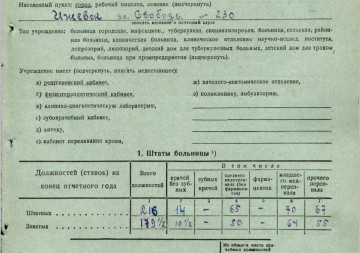 Населенный пункт: город, рабочий поселок, селение (подчеркнуть)
Ижевск ул. Свободы № 230
указать название и почтовый адрес
Тип учреждения: больница городская, инфекцион., туберкулезн., специализирован., больница, сельская, район-
ная больница, клиническая больница, клиническое отделение научно-исслед. института,
лепрозорий, детский дом для туберкулезных больных, детский дом для трахом
больных, больница при промпредприятии (подчеркнуть).
Учреждение имеет (подчеркнуть, вписать недостающее):
а) рентгеновский кабинет, ж) патолого-анатомическое отделение,
б) физиотерапевтический кабинет, з) поликлинику, амбулаторию.
в) клинико-диагностическую лабораторию,
г) зубоврачебный кабинет,
д) аптеку,
е) кабинет переливания крови,
1. Штаты больницы ¹)
Должностей (ставок) на конец отчетного года
Всего должностей
В том числе
врачей без зуб-ных
зубных врачей
среднего медперсо-нала (без фармацев-тов)
фарма-цевтов
младше-го мед-персо-нала
прочего персо-нала
1 2 3 4 5 6 7
Штатных 216 14 – 65 – 70 67
Занятых 179½ 10½ – 50 – 64 55
Из общего числа вра-
чебных должностей